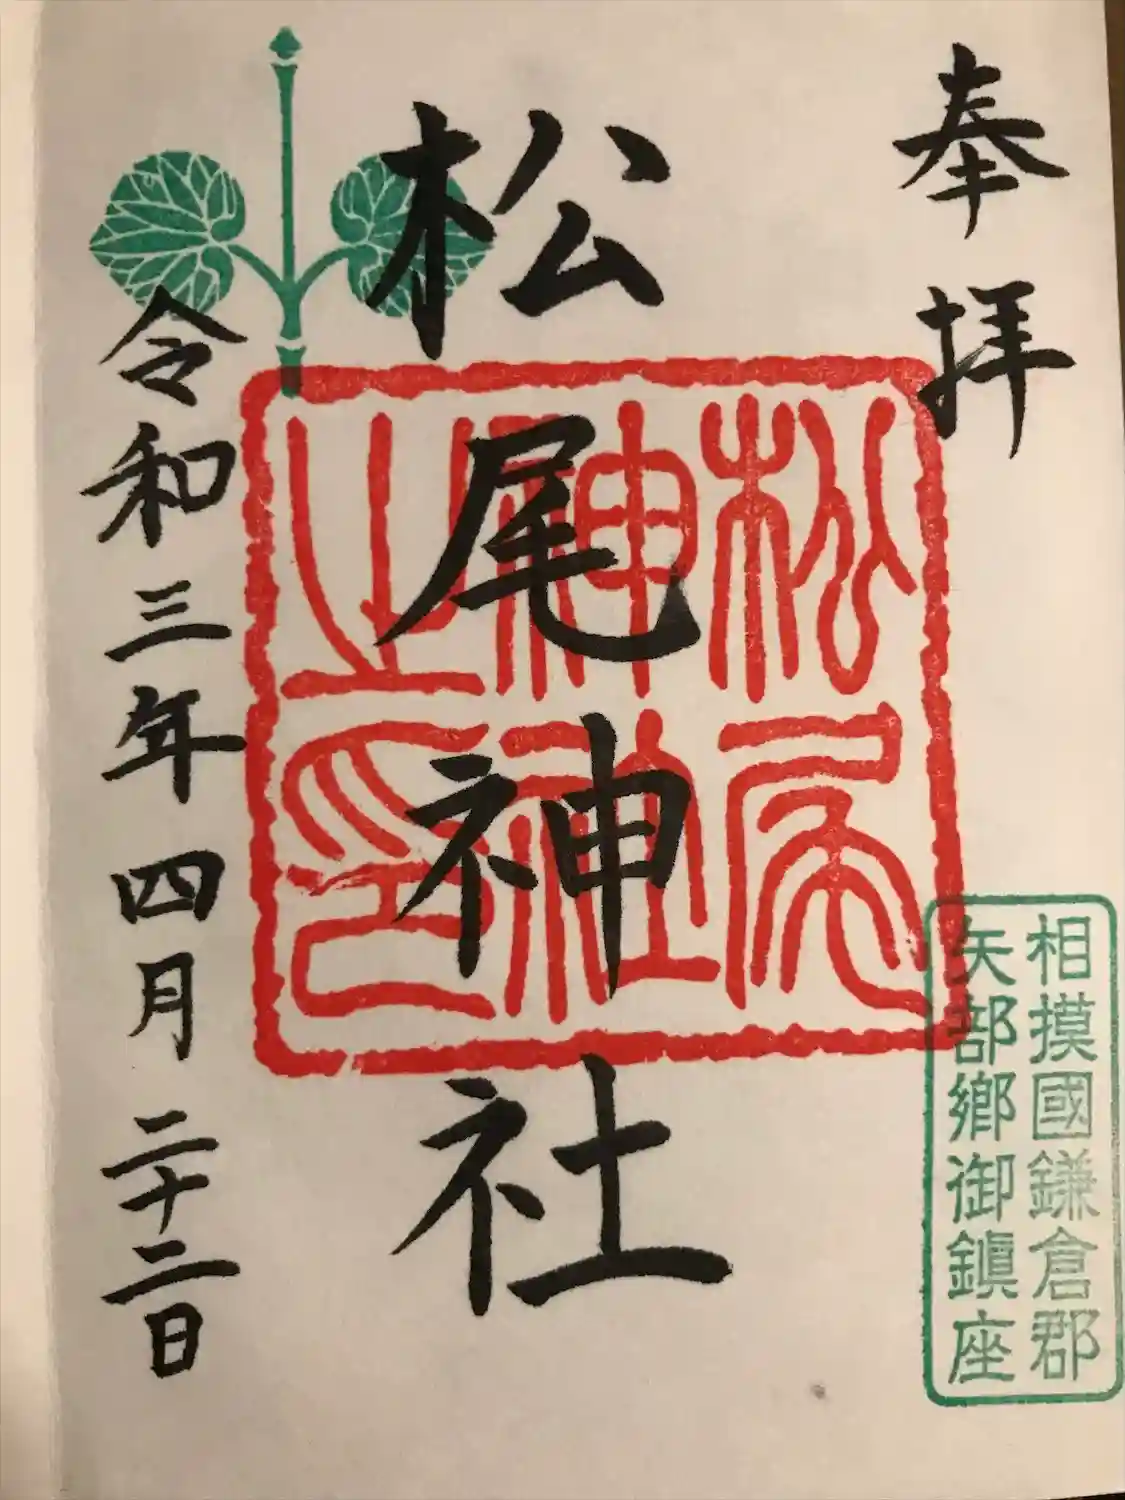 奉拝
相摸國鎌倉郡
矢部郷御鎮座
松尾神社
松尾
神社
之印
令和三年四月二十二日